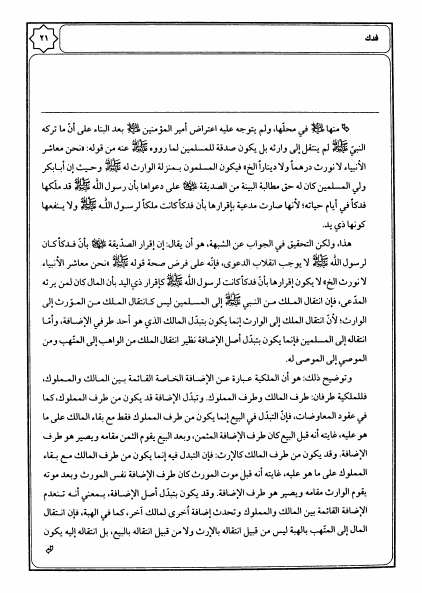 فدك
٢١
منها ﷺ في محلّها، ولم يتوجه عليه اعتراض أمير المؤمنين ﷺ بعد البناء على أنّ ما تركه
النبيّ ﷺ لم ينتقل إلى وارثه بل يكون صدقة للمسلمين لما رووه ﷺ عنه من قوله: «نحن معاشر
الأنبياء لا نورث درهماً ولا ديناراً الخ» فيكون المسلمون بمنزلة الوارث له ﷺ وحيث إن أبابكر
ولي المسلمين كان له حق مطالبة البينة من الصديقة على دعواها بأن رسول الله ﷺ قد ملّكها
فدكاً في أيام حياته؛ لأنها صارت مدعية بإقرارها بأن فدكاً كانت ملكاً لرسول الله ﷺ ولا ينفعها
كونها ذي يد.
هذا، ولكن التحقيق في الجواب عن الشبهة، هو أن يقال: إن إقرار الصدّيقة بأنّ فدكاً كان
لرسول الله ﷺ لا يوجب انقلاب الدعوى، فإنّه على فرض صحة قوله ﷺ «نحن معاشر الأنبياء
لا نورث الخ» لا يكون إقرارها بأن فدكاً كانت لرسول الله ﷺ كإقرار ذي اليد بأن المال كان لمن يرثه
المدّعي، فإن انتقال الملك من النبي ﷺ إلى المسلمين ليس كانتقال الملك من المورّث إلى
الوارث؛ لأنّ انتقال الملك إلى الوارث إنما يكون بتبدّل المالك الذي هو أحد طرفي الإضافة، وأمّا
انتقاله إلى المسلمين فإنما يكون بتبدّل أصل الإضافة نظير انتقال الملك من الواهب إلى المتّهب ومن
الموصي إلى الموصى له.
وتوضيح ذلك: هو أن الملكية عبارة عن الإضافة الخاصة القائمة بين المالك والمملوك،
فللملكية طرفان: طرف المالك وطرف المملوك. وتبدّل الإضافة قد يكون من طرف المملوك، كما
في عقود المعاوضات، فإنّ التبدّل في البيع إنما يكون من طرف المملوك فقط مع بقاء المالك على ما
هو عليه، غايته أنه قبل البيع كان طرف الإضافة المثمن، وبعد البيع يقوم الثمن مقامه ويصير هو طرف
الإضافة. وقد يكون من طرف المالك كالإرث: فإن التبدل فيه إنما يكون من طرف المالك مع بقاء
المملوك على ما هو عليه، غايته أنه قبل موت المورث كان طرف الإضافة نفس المورث وبعد موته
يقوم الوارث مقامه ويصير هو طرف الإضافة. وقد يكون بتبدّل أصل الإضافة، بمعني أنه تنعدم
الإضافة القائمة بين المالك والمملوك وتحدث إضافة أخرى لمالك آخر، كما في الهبة، فإن انتقال
المال إلى المتّهب بالهبة ليس من قبيل انتقاله بالإرث ولا من قبيل انتقاله بالبيع، بل انتقاله إليه يكون